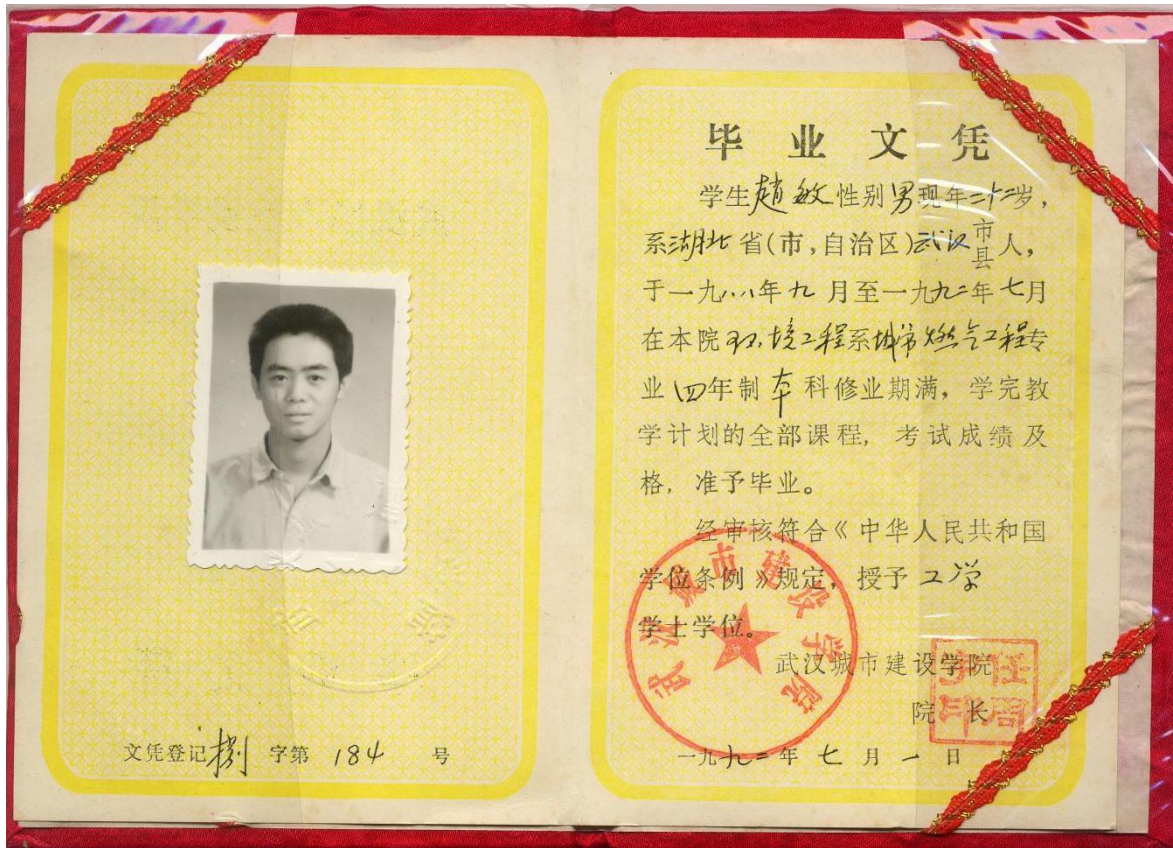 文凭登记捌字第184号
毕业文凭
学生赵敏性别男现年二十二岁，
系湖北省(市,自治区)武汉市县人，
于一九八八年九月至一九九二年七月
在本院环境工程系城市燃气工程专
业四年制本科修业期满，学完教
学计划的全部课程，考试成绩及
格，准予毕业。
经审核符合《中华人民共和国
学位条例》规定，授予工学
学士学位。
武汉城市建设学院
院长
一九九二年七月一日
武汉城市建设学院